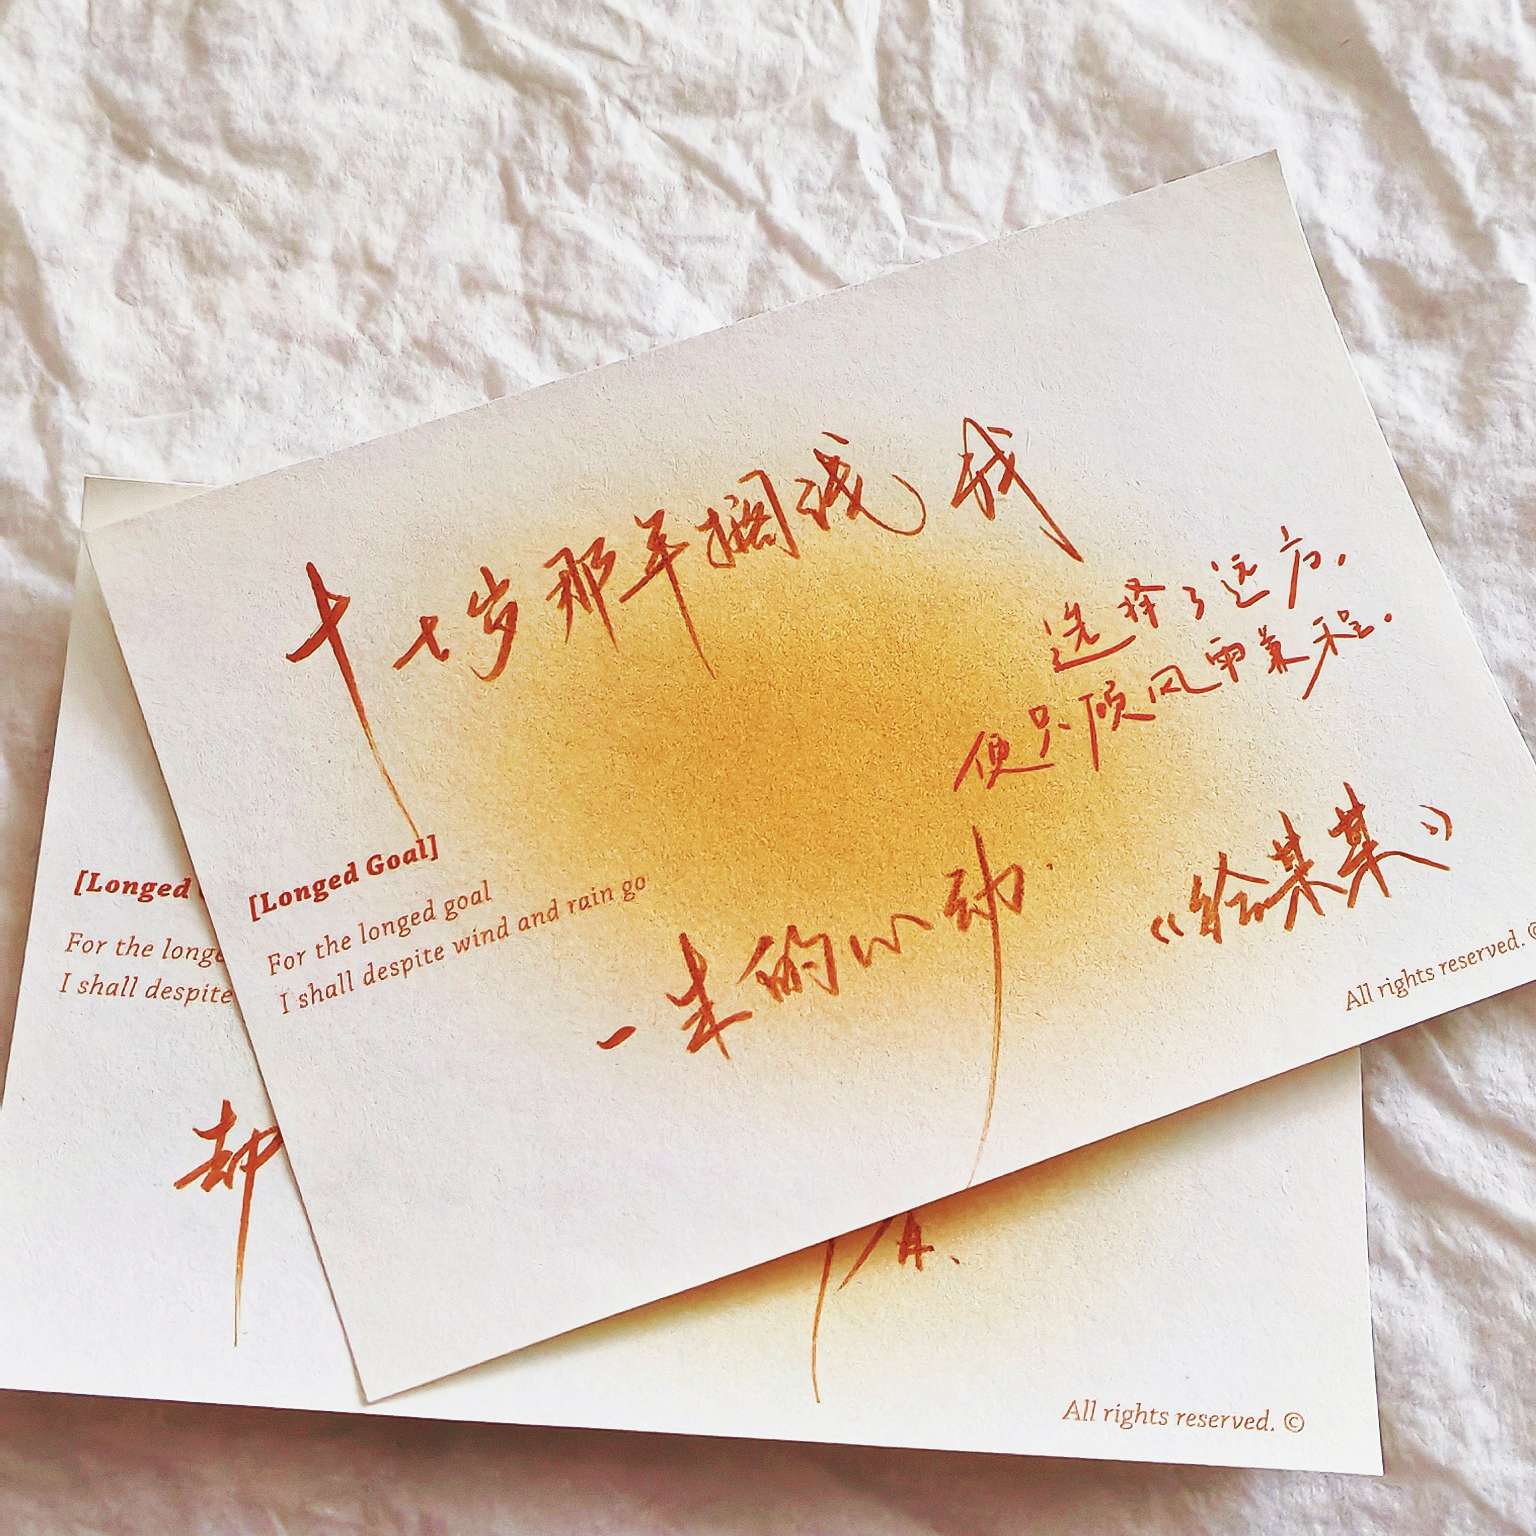 十七岁那年搁浅 我
选择了远方,
便只顾风雨兼程.
[Longed Goal]
For the longed goal
I shall despite wind and rain go
一生的心动.
《给某某》
All rights reserved. ©
[Longed
For the long
I shall despite
却
All rights reserved. ©